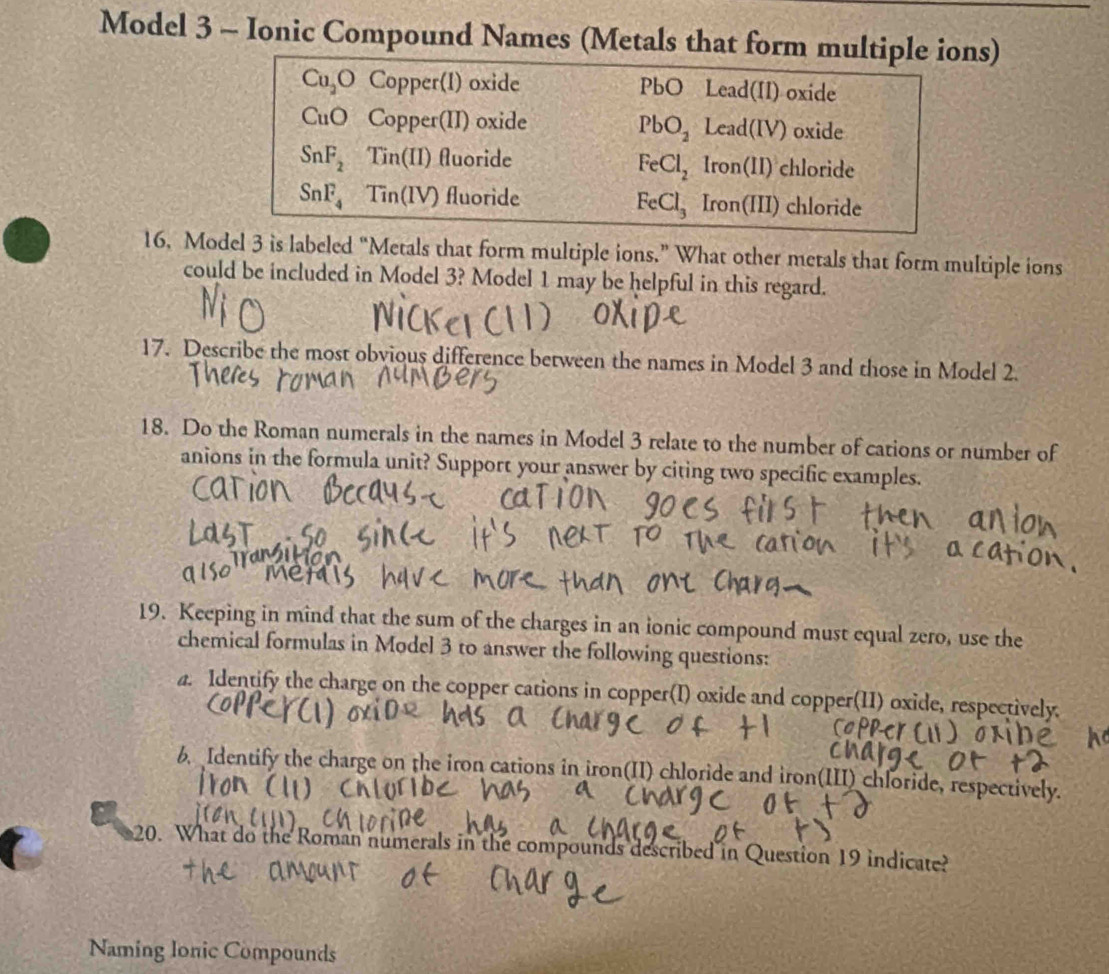 Model 3 – Ionic Compound Names (Metals that form multiple ions)
Cu₂O Copper(I) oxide PbO Lead(II) oxide
CuO Copper(II) oxide PbO₂ Lead(IV) oxide
SnF₂ Tin(II) fluoride FeCl₂ Iron(II) chloride
SnF₄ Tin(IV) fluoride FeCl₃ Iron(III) chloride
16. Model 3 is labeled "Metals that form multiple ions." What other metals that form multiple ions
could be included in Model 3? Model 1 may be helpful in this regard.
NiO Nickel(II) oxide
17. Describe the most obvious difference between the names in Model 3 and those in Model 2.
Theres roman numbers
18. Do the Roman numerals in the names in Model 3 relate to the number of cations or number of
anions in the formula unit? Support your answer by citing two specific examples.
cation Because cation goes first then anion
Last. So since it's next to the cation it's a cation.
also transition metals have more than one charge
19. Keeping in mind that the sum of the charges in an ionic compound must equal zero, use the
chemical formulas in Model 3 to answer the following questions:
a. Identify the charge on the copper cations in copper(I) oxide and copper(II) oxide, respectively.
copper(I) oxide has a charge of +1 copper(II) oxide
charge of +2
b. Identify the charge on the iron cations in iron(II) chloride and iron(III) chloride, respectively.
iron (II) chloribe has a charge of +2
iron (III) chloride has a charge of +3
20. What do the Roman numerals in the compounds described in Question 19 indicate?
the amount of charge
Naming Ionic Compounds